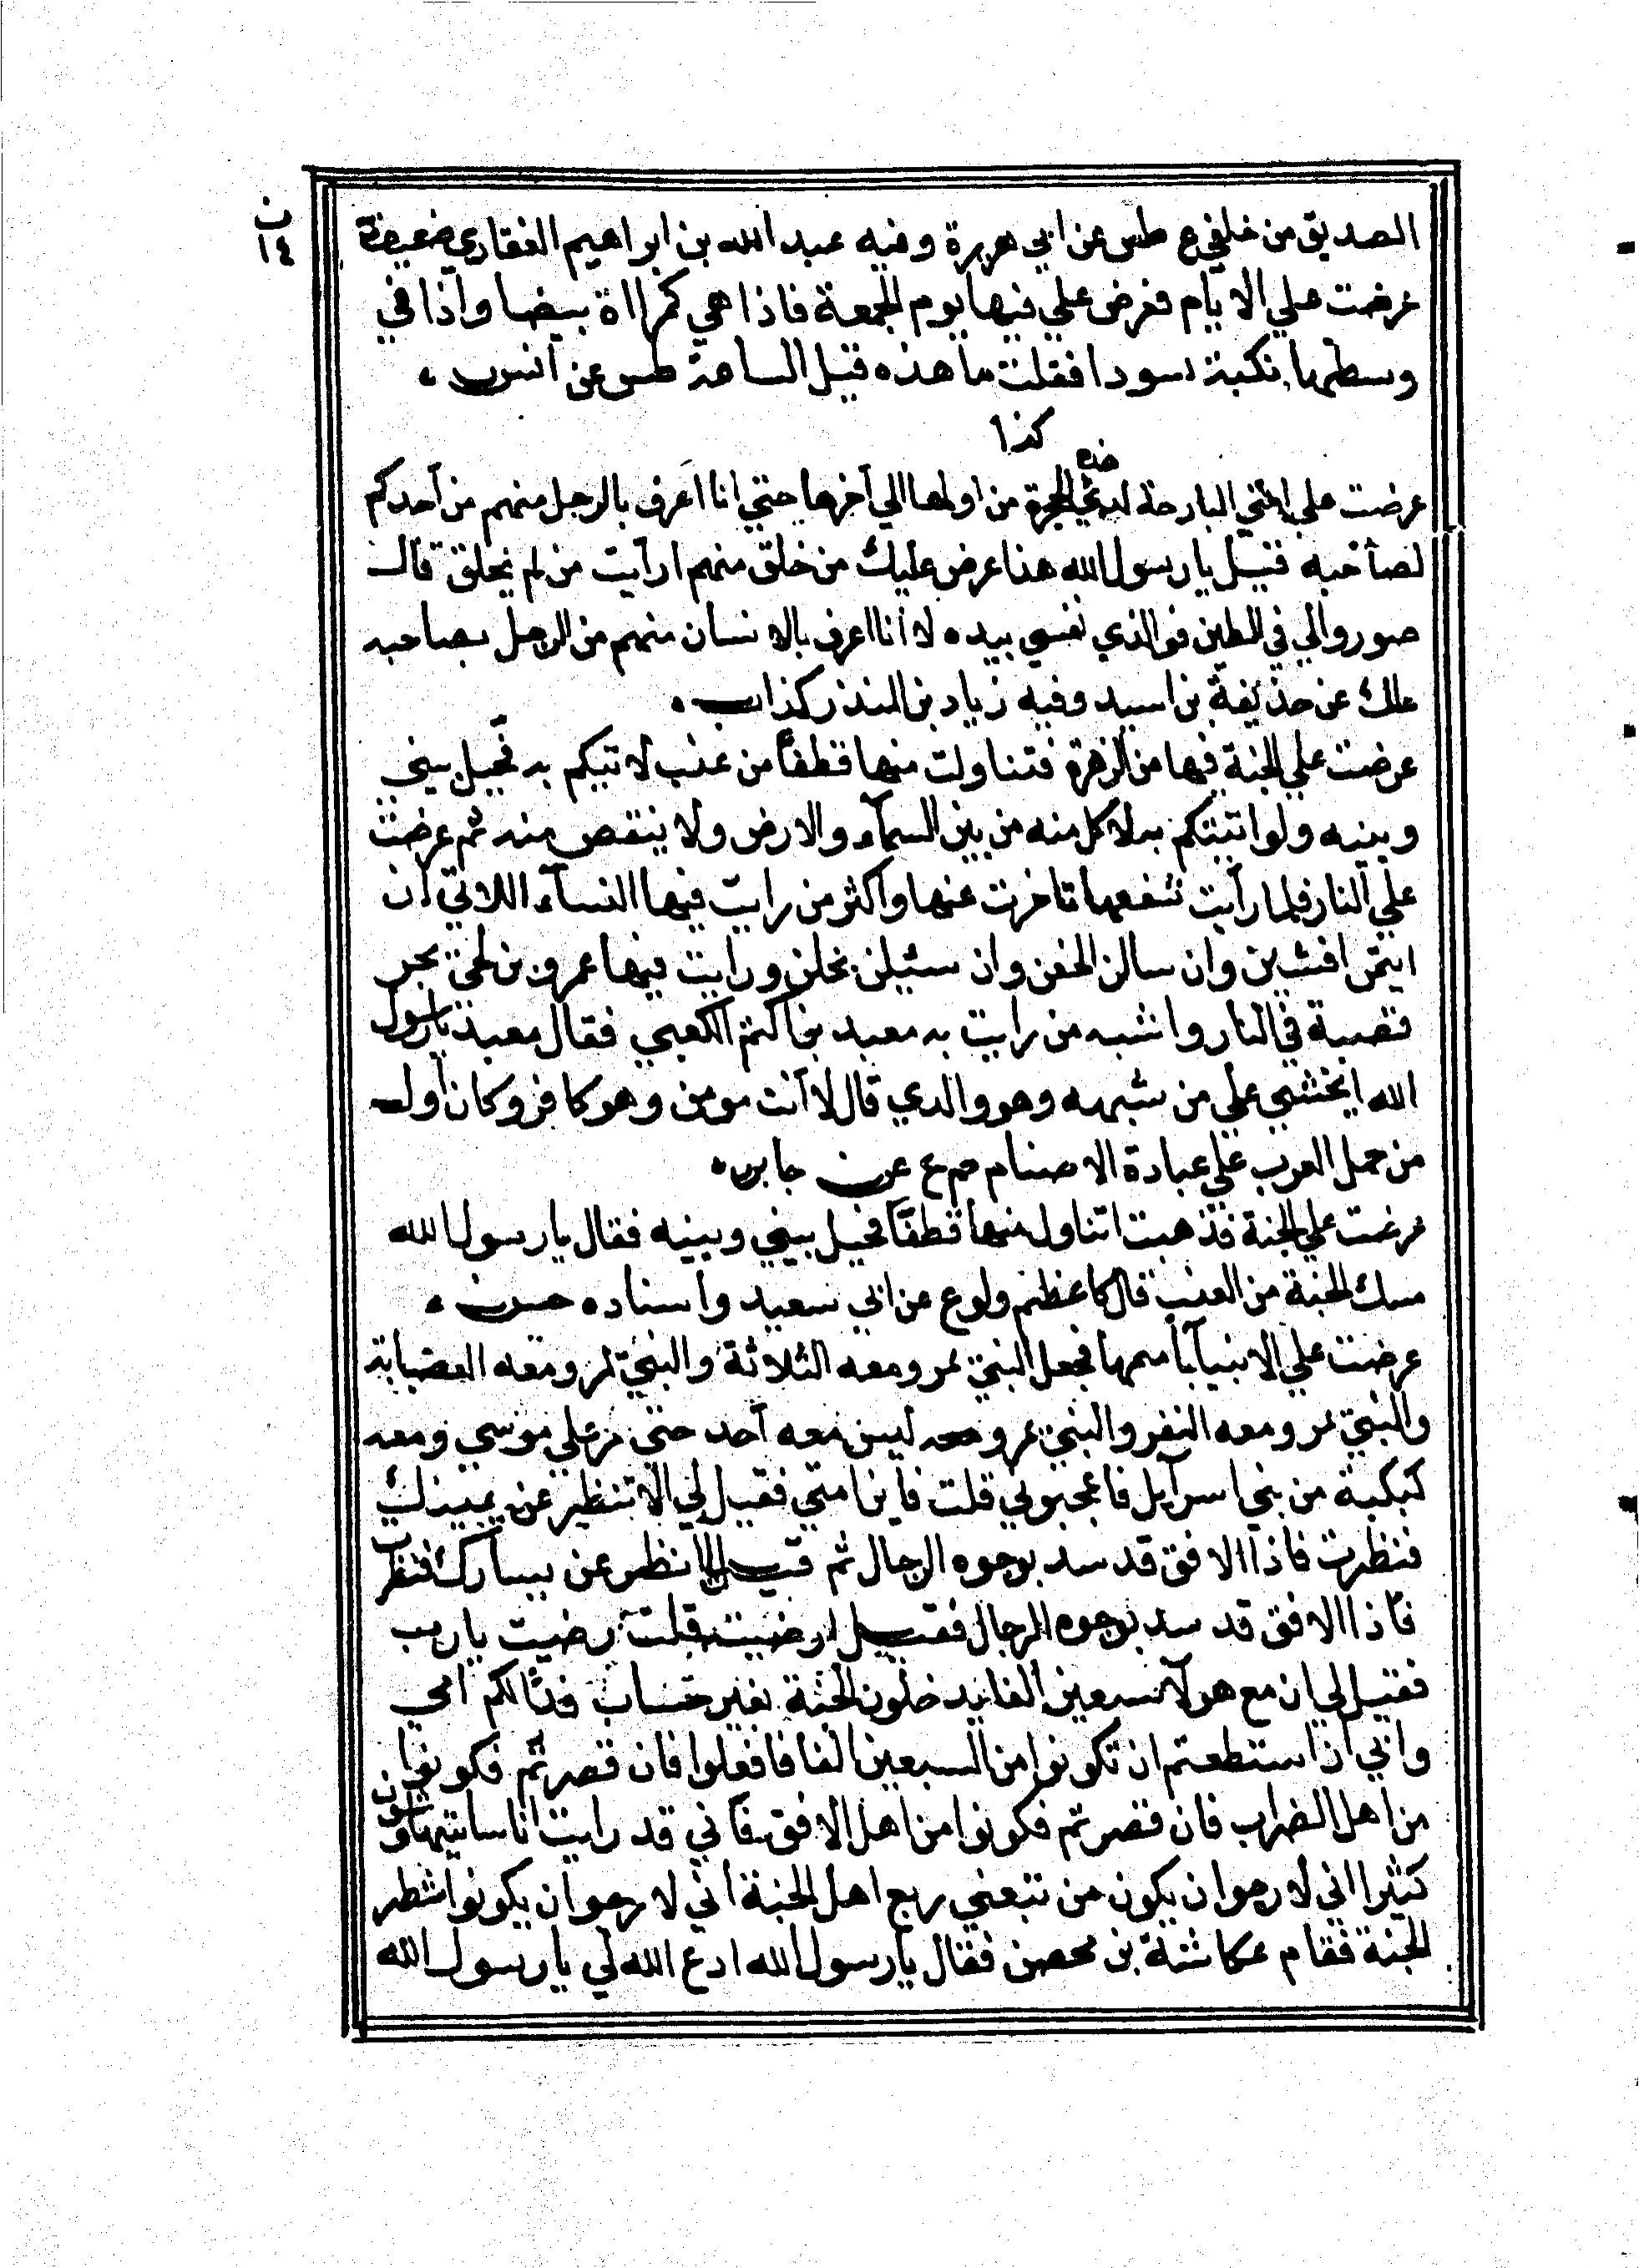 ن
١٤
الصديق من خلفي ع طس عن ابي هريرة وفيه عبد الله بن ابراهيم الغفاري ضعيف
عرضت علي الايام فعرض علي فيها يوم الجمعة فاذا هي كمراة بيضا واذا في
وسطها نكبة سودا فقلت ما هذه قيل الساعة طس عن انس
كذا
عرضت علي امتي البارحة لدي الحجرة من اولها الي آخرها حتي انا اعرف بالرجل منهم من احدكم
لصاحبه فقيل يا رسول الله هذا عرض عليك من خلق منهم ارايت من لم يخلق قال
صوروا لي في الطين فوالذي نفسي بيده لانا اعرف بالانسان منهم من الرجل بصاحبه
عن حذيفة بن اسيد وفيه زياد بن المنذر كذاب
عرضت علي الجنة فيها من الزهرة فتناولت منها قطفا من عنب لاتيكم به فحيل بيني
وبينه ولو اتيتكم به لاكل منه من بين السمآء والارض ولا ينقص منه ثم عرضت
علي النار فلما رايت سفعها تاخرت عنها واكثر من رايت فيها النسآء اللاتي ان
ايتمن افشين وان سالن الحفن وان سئيلن بخلن ورايت فيها عمرو بن لحي يجر
قصبة في النار واشبه من رايت به معبد بن اكثم الكعبي فقال معبد يا رسول
الله ايخشي علي من شبهه وهو والدي قال لا انت مومن وهو كافر وكان اول
من حمل العرب علي عبادة الاصنام حم ع عن جابر
عرضت علي الجنة فذهبت اتناول منها قطفا فحيل بيني وبينه فقال يا رسول الله
الجنة من العنب قال كاعظم ولو ع عن ابي سعيد واسناده حسن
عرضت علي الانبيا باممها فجعل النبي يمر ومعه الثلاثة والنبي يمر ومعه العصابة
والنبي يمر ومعه النفر والنبي يمر ومعه ليس معه احد حتي مر علي موسي ومعه
كبكبة من بني اسرآيل فاعجبوني قلت فاين امتي فقيل لي الا تنظر عن يمينك
فنظرت فاذا الافق قد سد بوجوه الرجال ثم قيل لي انظر عن يسارك فنظرت
فاذا الافق قد سد بوجوه الرجال فقيل ارضيت قلت رضيت يا رب
فقيل لي ان مع هولآء سبعين الفا يدخلون الجنة بغير حساب فدالكم امي
وابي ان استطعتم ان تكونوا من السبعين الفا فافعلوا فان قصرتم فكونوا
من اهل الضراب فان قصرتم فكونوا من اهل الافق فاني قد رايت اناسا يتهاوشون
كثيرا اني لارجو ان يكون من تبعني ربع اهل الجنة اني لارجو ان يكونوا شطر
الجنة فقام عكاشة بن محصن فقال يا رسول الله ادع الله لي يا رسول الله